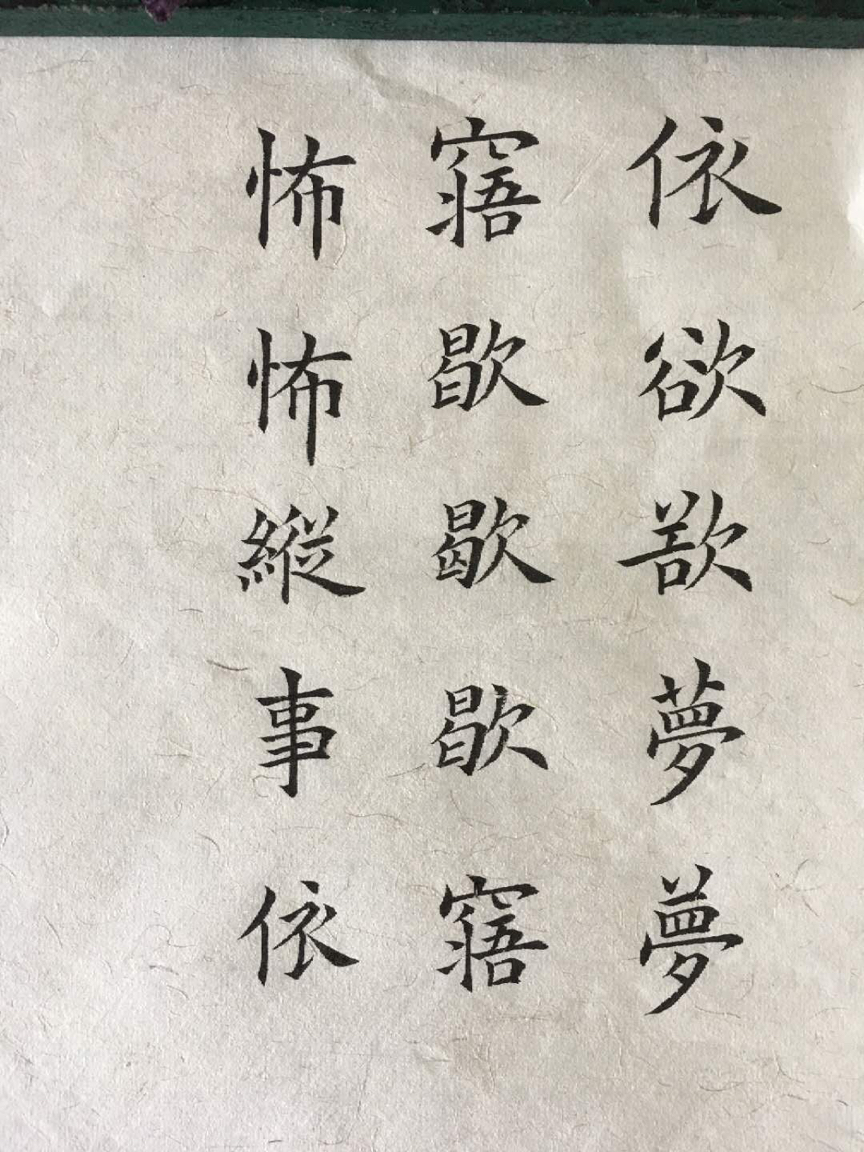 依欲夢夢
寤歇歇歇寤
怖怖縦事依